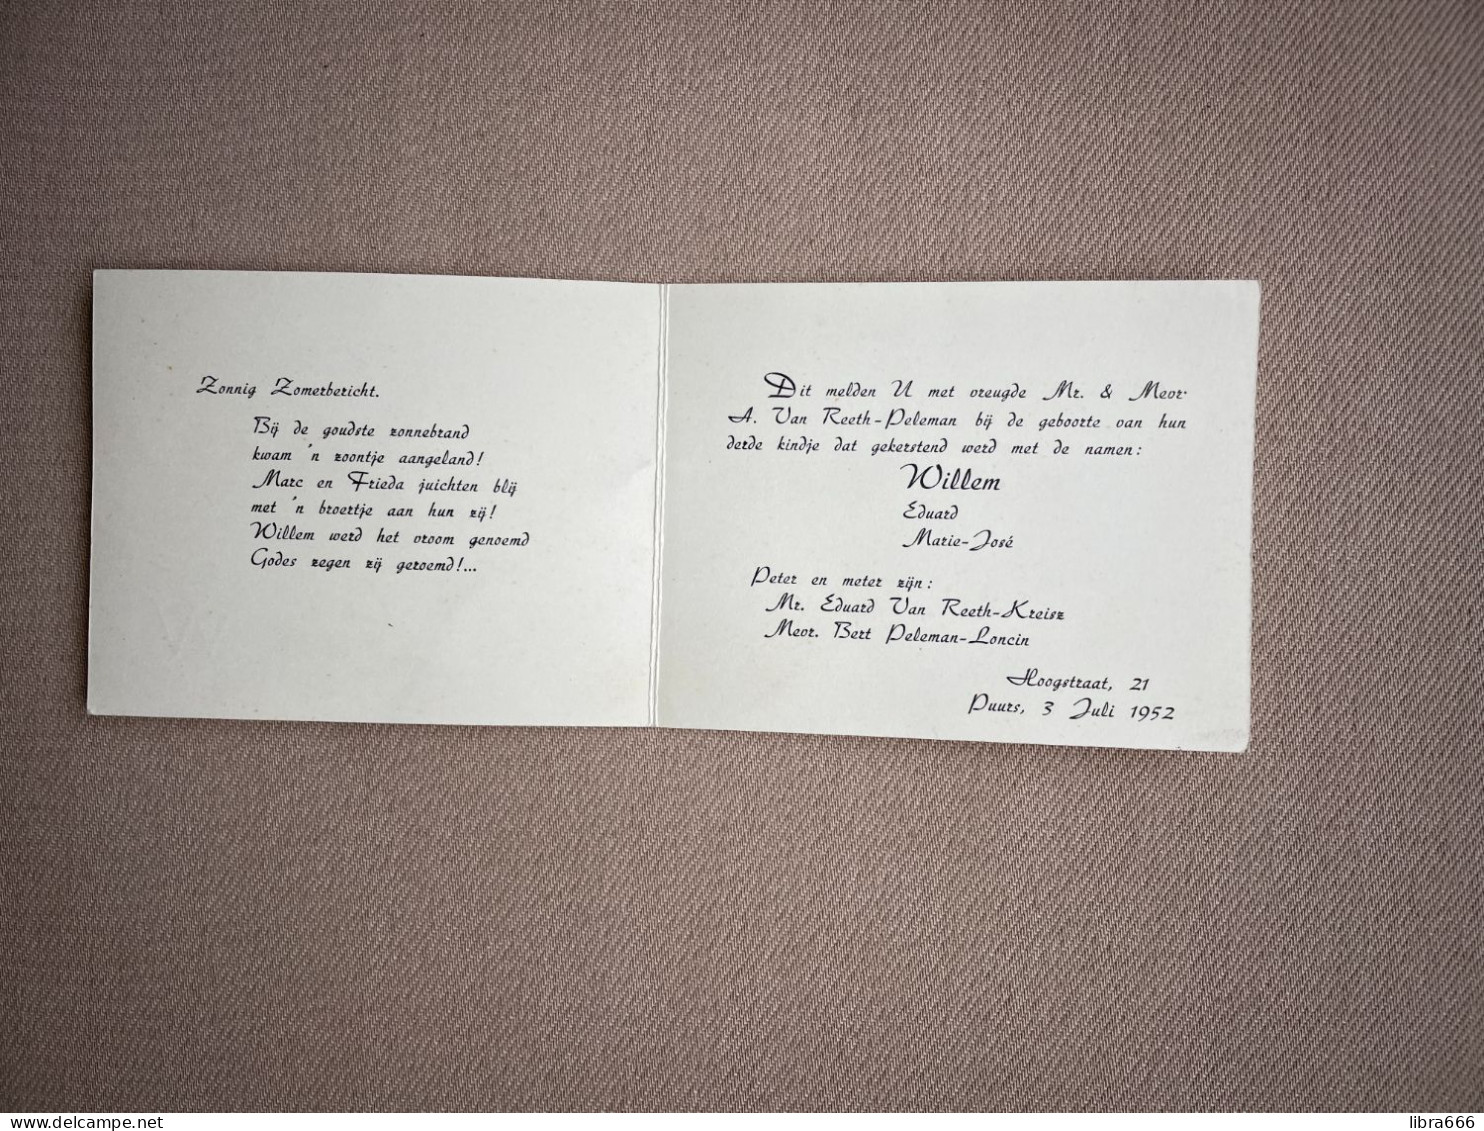 Zonnig Zomerbericht.
Bij de goudste zonnebrand
kwam 'n zoontje aangeland!
Marc en Frieda juichten blij
met 'n broertje aan hun zij!
Willem werd het vroom genoemd
Godes zegen zij geroemd!...
Dit melden U met vreugde Mr. & Mevr.
A. Van Reeth-Peleman bij de geboorte van hun
derde kindje dat gekerstend werd met de namen:
Willem
Eduard
Marie-José
Peter en meter zijn:
Mr. Eduard Van Reeth-Kreisz
Mevr. Bert Peleman-Loncin
Hoogstraat, 21
Puurs, 3 Juli 1952
www.delcampe.net
libra666